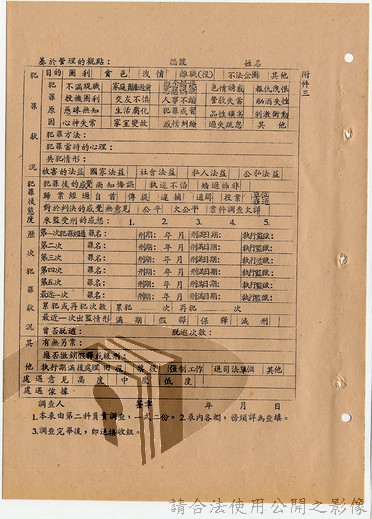 附件三
基於管理的觀點： 編號 姓名
犯罪狀況
目的 圖利 貪色 洩憤 離職(役) 不法企圖 其他
犯罪原因
不滿現職 色情誘惑 報仇洩恨
投機圖利 交友不慎 人事不調 管教失當 酗酒失性
愚昧無知 生活腐化 犯罪成習 品性頑劣 刺激衝動
心神失常 家室變故 感情糾紛 過失疏忽 其他
犯罪方法：
犯罪當時的心理：
共犯情形：
被害的法益 國家法益 社會法益 私人法益 公私法益
犯罪後態度
犯罪後的感覺 尚知悔誤 執迷不悟
歸案經過 自首 傳提 逮捕 通緝 投案
對於判決的感覺 無意見 公平 欠公平 案件調查欠詳
來監受刑的感想： 1. 2. 3. 4. 5.
歷次犯罪狀況
第一次犯罪 罪名： 刑期： 年 月 刑滿日期： 執行監獄：
第二次 罪名： 刑期： 年 月 刑滿日期： 執行監獄：
第三次 罪名： 刑期： 年 月 刑滿日期： 執行監獄：
第四次 罪名： 刑期： 年 月 刑滿日期： 執行監獄：
第五次 罪名： 刑期： 年 月 刑滿日期： 執行監獄：
最近一次 罪名： 刑期： 年 月 刑滿日期： 執行監獄：
累犯或再犯次數 累犯 次 再犯 次
最近一次出監情形 滿期 假釋 保釋 減刑
其他
曾否脫逃： 脫逃次數：
有無另案：
應否撤銷假釋或緩刑：
執行期滿後處理 回役 禁役 強制工作 送司法單位 其他
處遇意見 高度 中度 低度
處遇依據
調查人 簽章 年 月 日
1.本表由第二科員負調查，一式二份。2.表內各欄，務須詳為查填。
3.調查完畢後，即送接收組。
請合法使用公開之影像